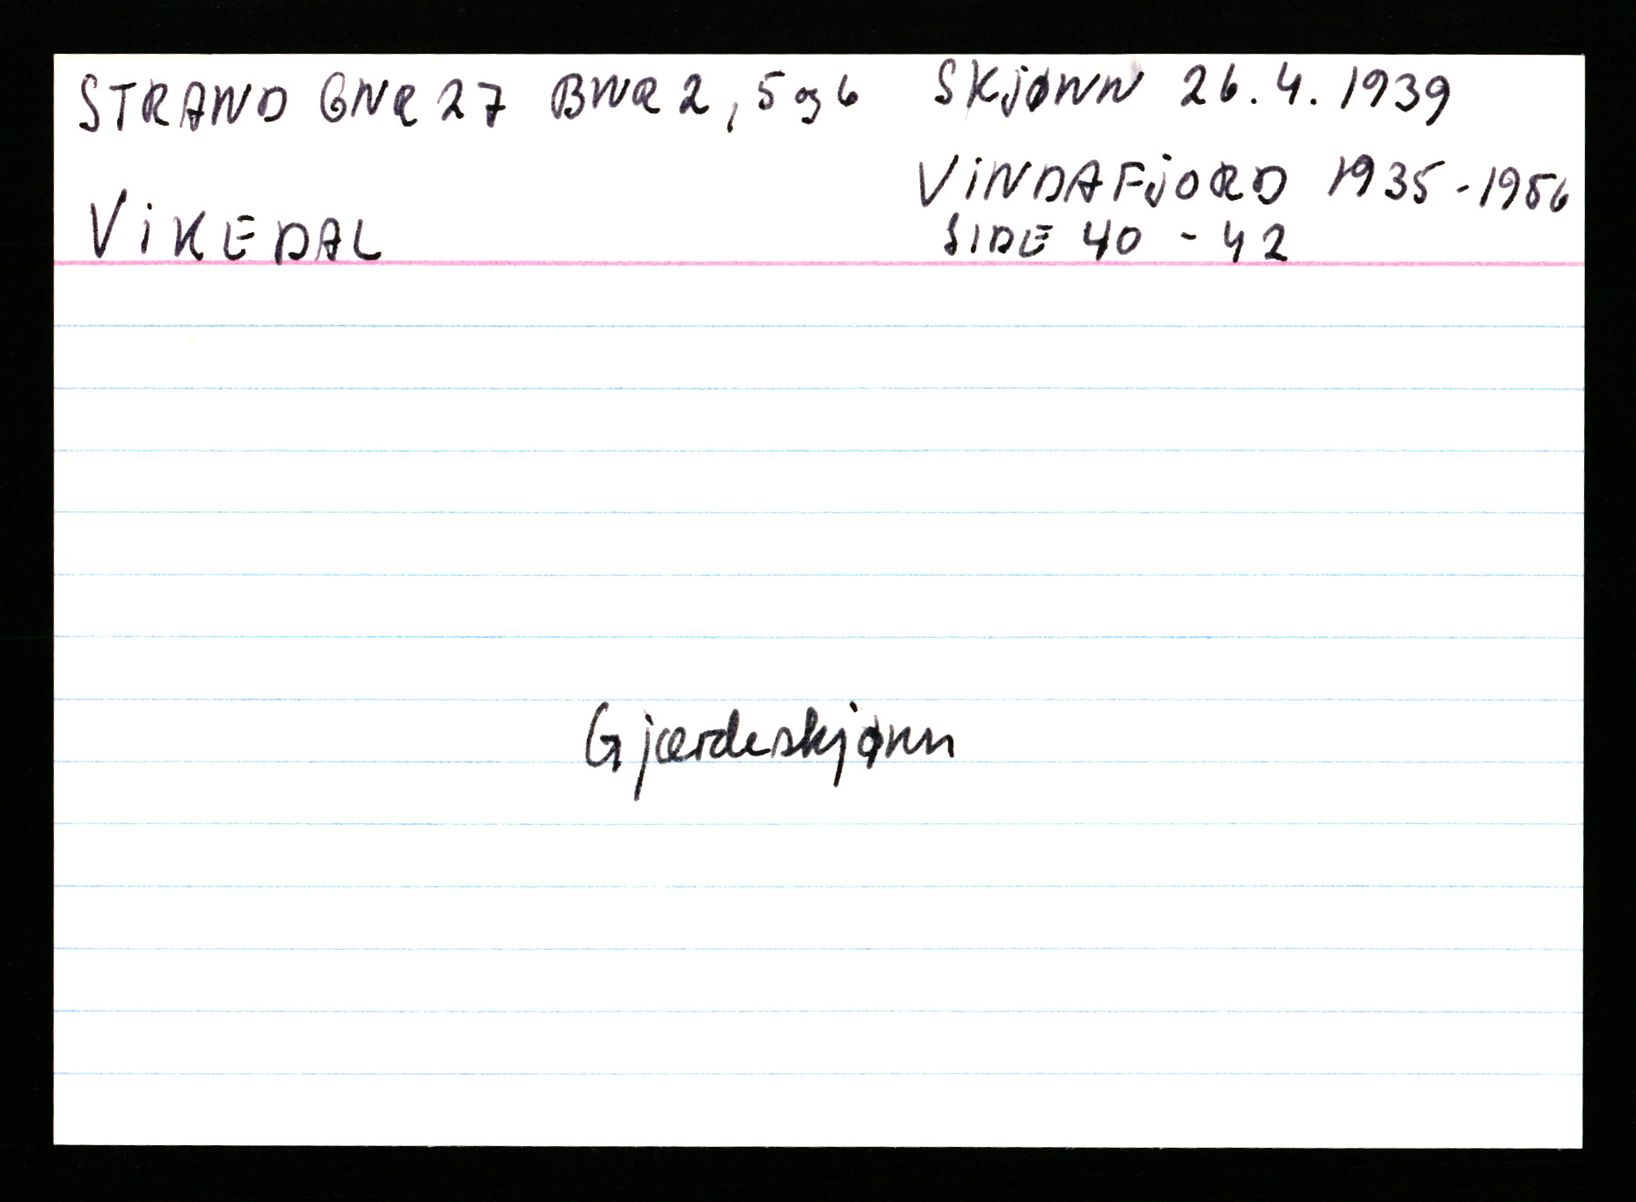 STRAND GNR 27 BNR 2, 5 og 6 SKjØNN 26.4.1939
ViNDAFjORD 1935-1956
ViKEDAL SIDE 40 - 42
Gjærdeskjønn